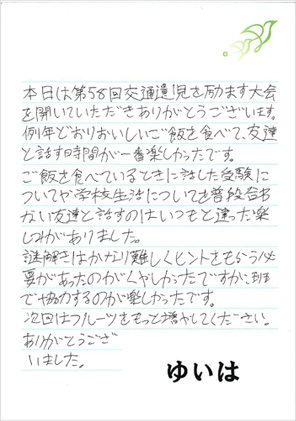 本日は第58回交通遺児を励ます大会
を開いていただきありがとうございます。
例年どおりおいしいご飯を食べて、友達
と話す時間が一番楽しかったです。
ご飯を食べているときに話した受験に
ついてや学校生活についてを普段会わ
ない友達と話すのはいつもと違った楽
しさがありました。
謎解きはかなり難しくヒントをもらう必
要があったのがくやしかったですが、班
で協力するのが楽しかったです。
次回はフルーツをもっと増やしてください。
ありがとうござ
いました。
ゆいは